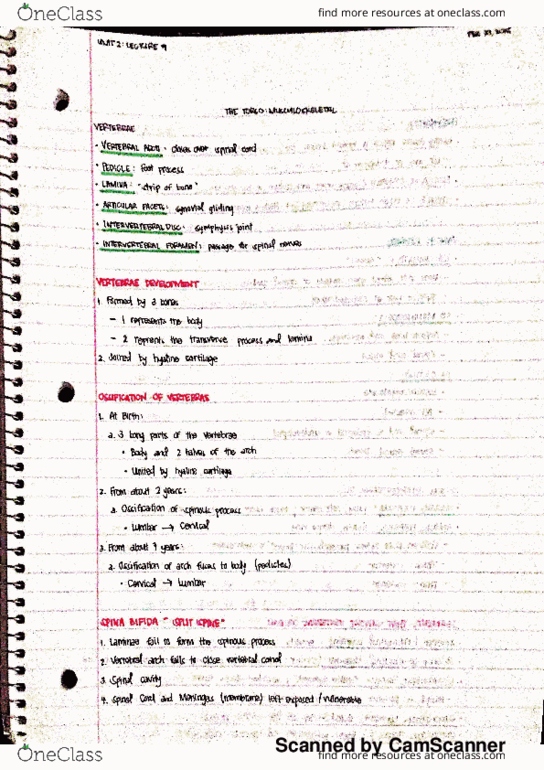 OneClass
find more resources at oneclass.com
UNIT 2: LECTURE 9
THE TORSO: MUSCULOSKELETAL
VERTEBRAE
• VERTEBRAL ARCH: closes over spinal cord
• PEDICLE: foot process
• LAMINA: "strip of bone"
• ARTICULAR FACETS: synovial gliding
• INTERVERTEBRAL DISC: symphysis joint
• INTERVERTEBRAL FORAMEN: passage for spinal nerves
VERTEBRAE DEVELOPMENT
1. Formed by 3 bones
- 1 represents the body
- 2 represents the transverse process and lamina
2. Joined by hyaline cartilage
OSSIFICATION OF VERTEBRAE
1. At Birth:
a. 3 bony parts of the vertebrae
• Body and 2 halves of the arch
• United by hyaline cartilage
2. From about 2 years:
a. Ossification of spinous process
• Lumbar → Cervical
3. From about 7 years:
a. Ossification of arch fuses to body (pedicles)
• Cervical → Lumbar
SPINA BIFIDA "SPLIT SPINE"
1. Laminae fail to form the spinous process
2. Vertebral arch fails to close vertebral canal
3. Spinal cavity
4. Spinal Cord and Meninges (membrane) left exposed / vulnerable
Scanned by CamScanner
OneClass
find more resources at oneclass.com